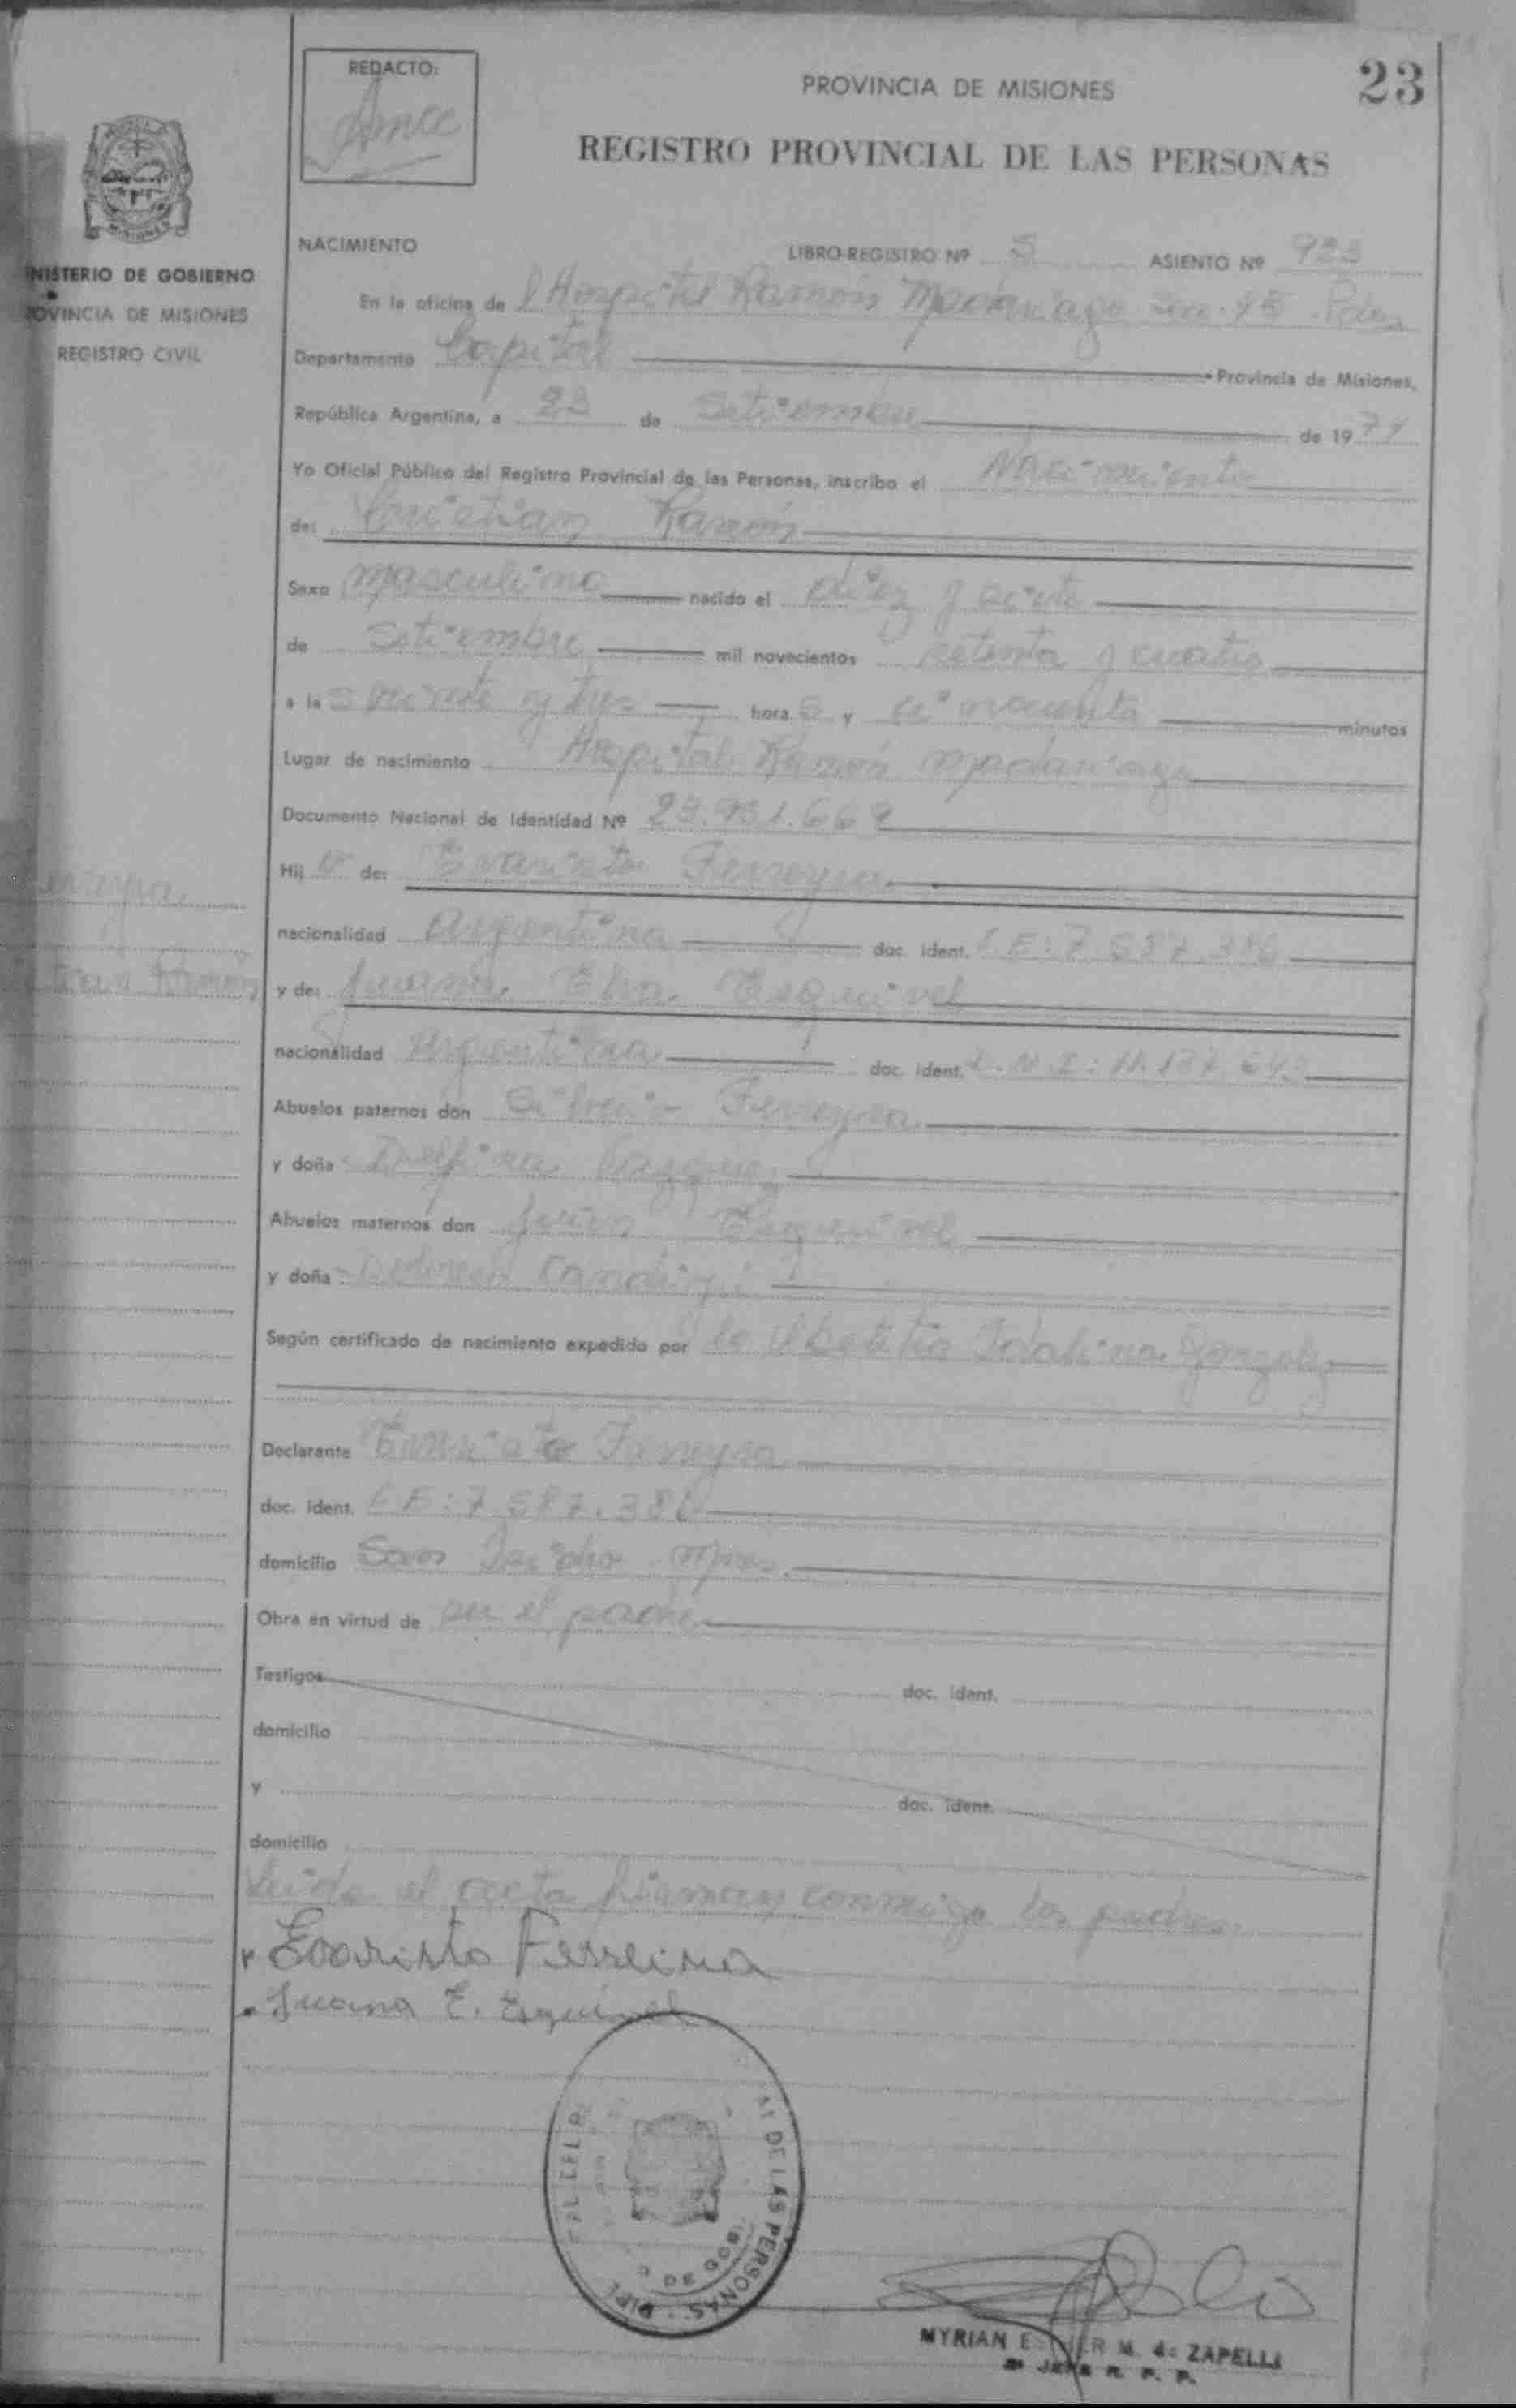 REDACTO:
PROVINCIA DE MISIONES
23
REGISTRO PROVINCIAL DE LAS PERSONAS
MISIONES
MINISTERIO DE GOBIERNO
PROVINCIA DE MISIONES
REGISTRO CIVIL
NACIMIENTO LIBRO-REGISTRO Nº 5 ASIENTO Nº 923
En la oficina de l Hospital Ramón Madariaga Pdas
Departamento Capital Provincia de Misiones,
República Argentina, a 23 de Setiembre de 1974
Yo Oficial Público del Registro Provincial de las Personas, inscribo el Nacimiento
de: Cristian Ramón
Sexo masculino nacido el diez y siete
de Setiembre mil novecientos setenta y cuatro
a las veinte y tres hora s y cincuenta minutos
Lugar de nacimiento Hospital Ramón Madariaga
Documento Nacional de Identidad Nº 23.931.669
Hij o de: Evaristo Ferreyra
nacionalidad argentina doc. ident. L.E: 7.587.386
y de: Juana Elsa Esquivel
nacionalidad argentina doc. ident. D.N.I: 11.137.642
Abuelos paternos don Silverio Ferreyra
y doña Delfina Vazquez
Abuelos maternos don Juan Esquivel
y doña
Según certificado de nacimiento expedido por la Obstetra Idalina Gonzalez
Declarante Evaristo Ferreyra
doc. ident. L.E: 7.587.386
domicilio San Isidro Mnes.
Obra en virtud de ser el padre
Testigos doc. ident.
domicilio
y doc. ident.
domicilio
Leida el acta firman conmigo los padres
Evaristo Ferreira
Juana E. Esquivel
DE LAS PERSONAS
DE GOB.
MYRIAN ESTHER M. de ZAPELLI
JEFE R. P. P.